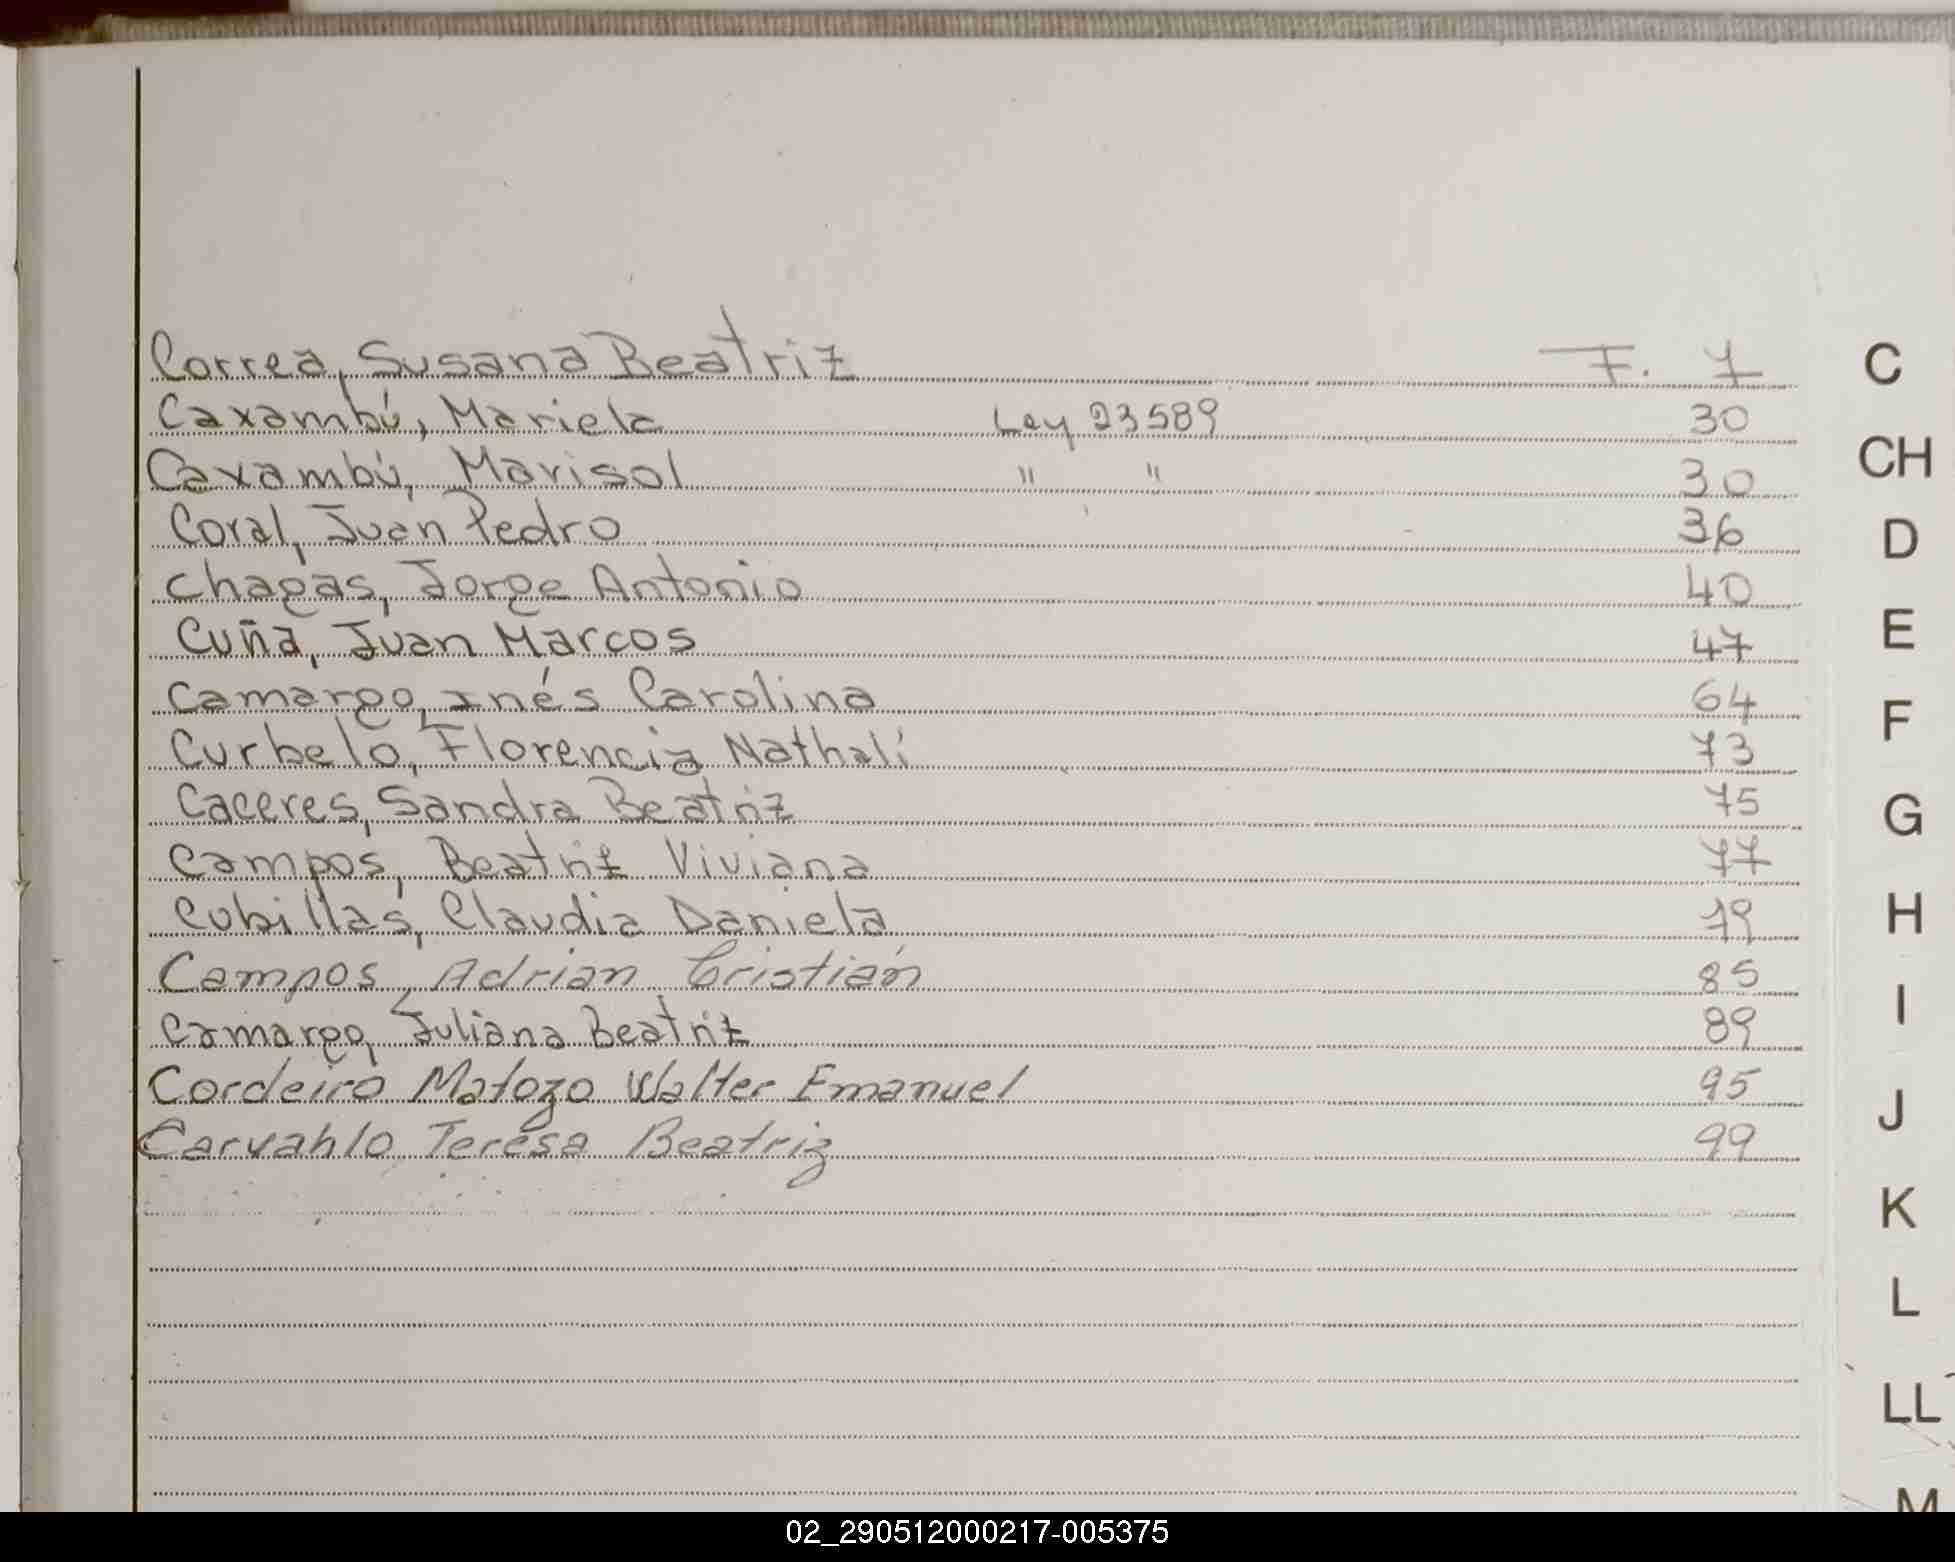 Correa, Susana Beatriz F. 7
Caxambú, Mariela Ley 23589 30
Caxambú, Marisol " " 30
Coral, Juan Pedro 36
Chagas, Jorge Antonio 40
Cuña, Juan Marcos 47
Camargo, Inés Carolina 64
Curbelo, Florencia Nathalí 73
Caceres, Sandra Beatriz 75
Campos, Beatriz Viviana 77
Cubillas, Claudia Daniela 79
Campos, Adrian Cristián 85
Camargo, Juliana Beatriz 89
Cordeiro Matozo Walter Emanuel 95
Carvahlo, Teresa Beatriz 99
C
CH
D
E
F
G
H
I
J
K
L
LL
M
02_290512000217-005375